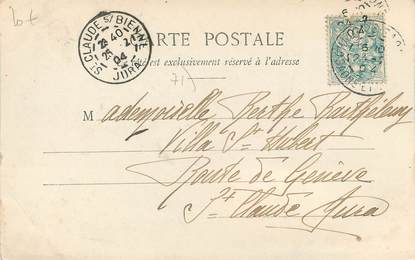 10 €
ST CLAUDE S/ BIENNE
2E 40
25 -2
04
JURA
CARTE POSTALE
est exclusivement réservé à l'adresse
71
Mademoiselle Berthe Barthélemy
Villa St Hubert
Route de Genève
St Claude Jura